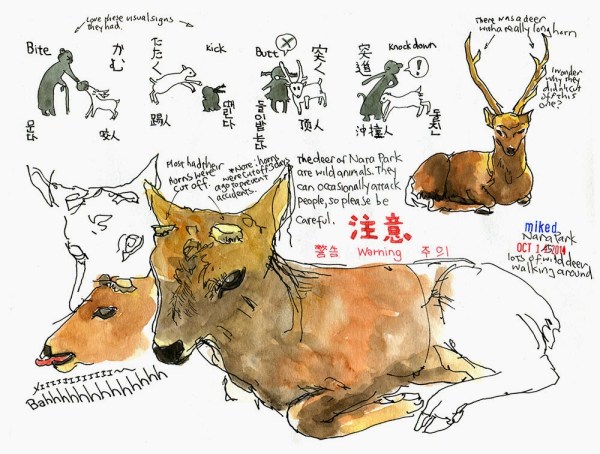 Love these visual signs
they had.
Bite
かむ
たたく
Kick
Butt
突く
突進
Knock down
!
문다
咬人
踢人
顶人
冲撞人
돌진
There was a deer
with a really long horn
I wonder
why they
didn't cut
off this
one?
Most had their
horns were
cut off.
*Note: horns
were cut off 3 days
ago to prevent
accidents.
The deer of Nara Park
are wild animals. They
can occasionally attack
people, so please be
careful.
注意
警告 Warning 주의
miked
Nara Park
OCT
lots of wild deer
walking around
Bahhhhhhhhhhhhhh